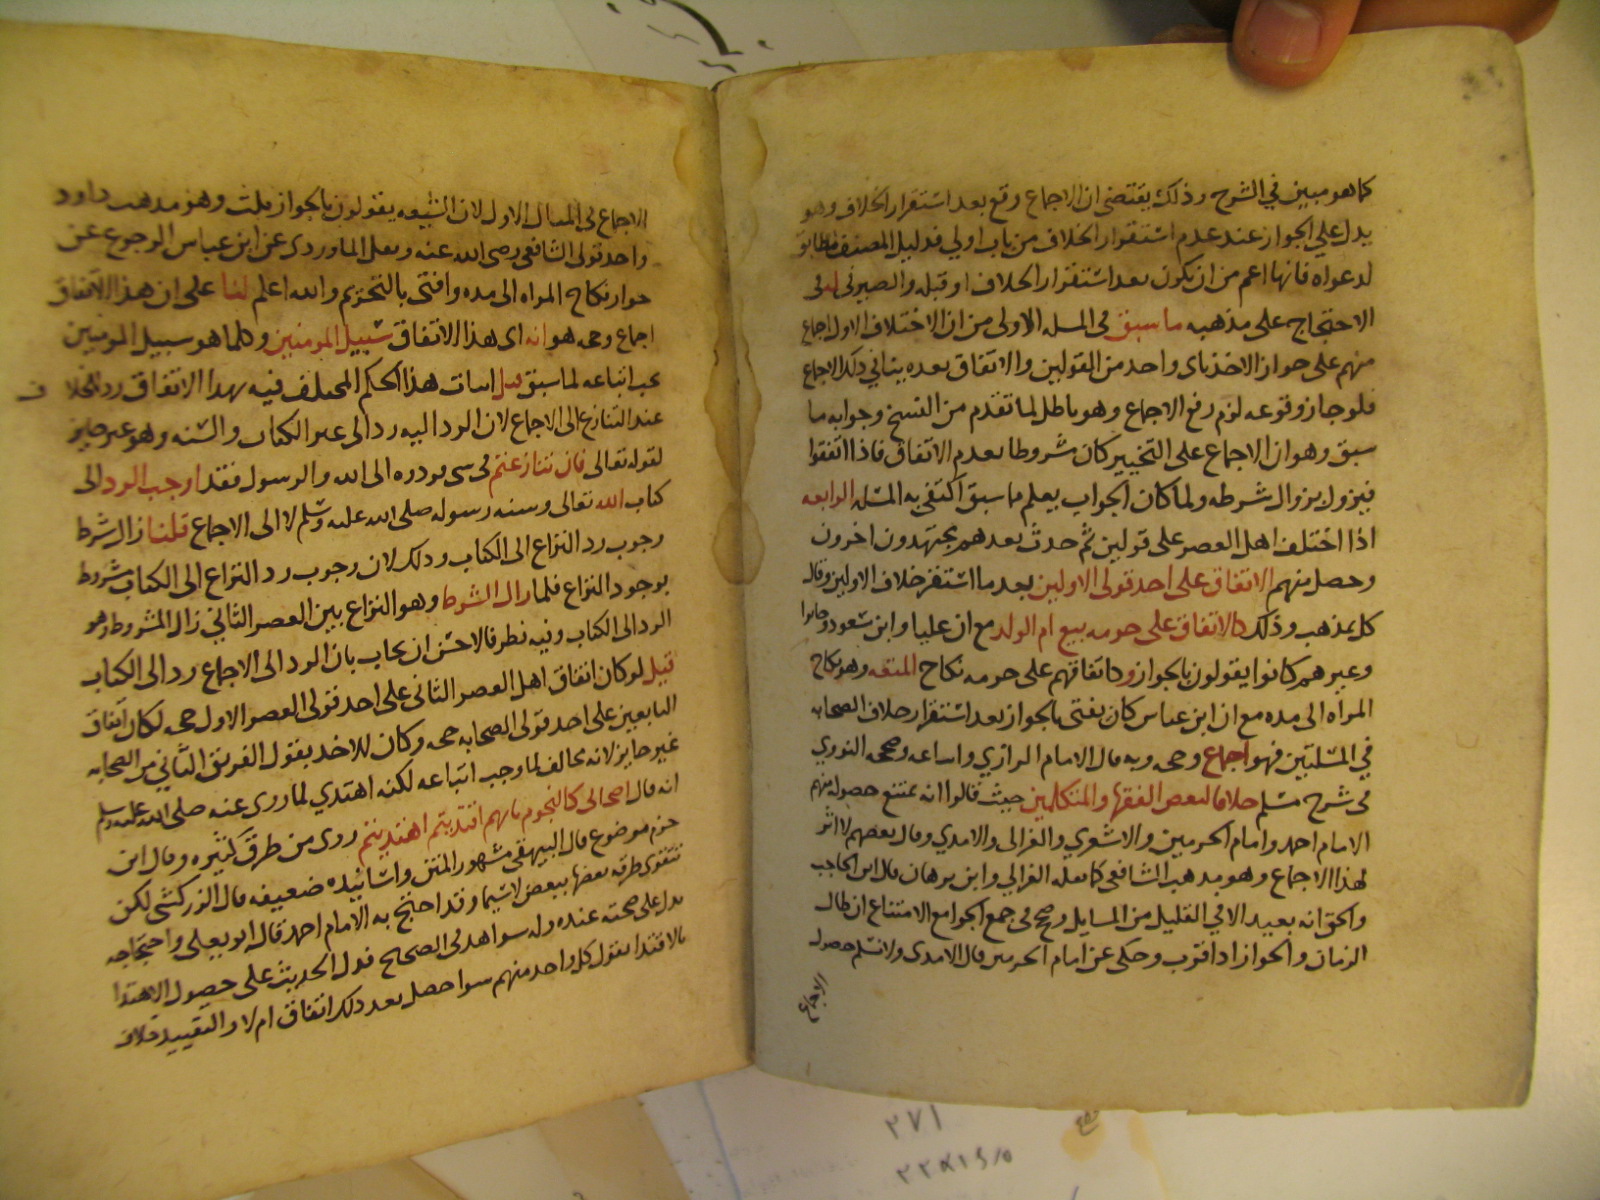 كما هو مبين في الشرح وذلك يقتضي ان الاجماع وقع بعد استقرار الخلاف وهو
يدل علي الجواز عند عدم استقرار الخلاف من باب اولي فدليل المصنف مطابق
لدعواه فانها اعم من ان يكون بعد استقرار الخلاف او قبله والصيرفي
الاحتجاج على مذهبه ما سبق في المسله الاولى من ان الاختلاف الاول اجماع
منهم على جواز الاخذ باى واحد من القولين والاتفاق بعده ينافي ذلك الاجماع
فلو جاز وقوعه لزم رفع الاجماع وهو باطل لما تقدم من النسخ وجوابه ما
سبق وهو ان الاجماع على التخيير كان مشروطا بعدم الاتفاق فاذا اتفقوا
فيزول بزوال شرطه ولما كان الجواب يعلم مما سبق اكتفى به المسله الرابعه
اذا اختلف اهل العصر على قولين ثم حدث بعدهم مجتهدون اخرون
وحصل منهم الاتفاق على احد قولى الاولين بعد ما استقر خلاف الاولين وقال
كل بمذهب وذلك كالاتفاق على حرمه بيع ام الولد مع ان عليا وابن مسعود وجابرا
وغيرهم كانوا يقولون بالجواز وكاتفاقهم على حرمه نكاح المتعه وهو نكاح
المراه الى مده مع ان ابن عباس كان يفتى بالجواز بعد استقرار خلاف الصحابه
في المسلتين فهو اجماع وحجه وبه قال الامام الرازي واتباعه وصححه النووي
فى شرح مسلم خلافا لبعض الفقها والمتكلمين حيث قالوا انه يمتنع حصوله منهم
الامام احمد وامام الحرمين والاشعري والغزالى والامدي وقال بعضهم لا اثر
لهذا الاجماع وهو مذهب الشافعى كما نقله الغزالي وابن برهان قال ابن الحاجب
والحق انه بعيد الا في القليل من المسايل وصح في جمع الجوامع الامتناع ان طال
الزمان والجواز اذا قرب وحكى عن امام الحرمين قال الامدى ولا نسلم حصول
الاجماع
الاجماع في المسال الاول لان الشيعه يقولون بالجواز قلت وهو مذهب داود
واحد قولى الشافعى رضى الله عنه ونقل الماوردى عن ابن عباس الرجوع عن
جواز نكاح المراه الى مده وافتى بالتحريم والله اعلم لنا على ان هذا الاتفاق
اجماع وحجه هو انه اى هذا الاتفاق سبيل المومنين وكلما هو سبيل المومنين
يجب اتباعه لما سبق قيل اثبات هذا الحكم المختلف فيه بهذا الاتفاق رد للخلاف
عند التنازع الى الاجماع لان الرد اليه رد الى غير الكتاب والسنه وهو غير جايز
لقوله تعالى فان تنازعتم في شى فردوه الى الله والرسول فقد اوجب الرد الى
كتاب الله تعالى وسنه رسوله صلى الله عليه وسلم لا الى الاجماع قلنا زال الشرط
وجوب رد النزاع الى الكتاب وذلك لان وجوب رد النزاع الى الكتاب مشروط
بوجود النزاع فلما زال الشرط وهو النزاع بين العصر الثاني زال المشروط وهو
الرد الى الكتاب وفيه نظر فالاحسن ان يجاب بان الرد الى الاجماع رد الى الكتاب
قيل لو كان اتفاق اهل العصر الثانى على احد قولى العصر الاول حجه لكان اتفاق
التابعين على احد قولى الصحابه حجه وكان للاخذ بقول الفريق الثاني من الصحابه
غير جايز لانه مخالف لما وجب اتباعه لكنه اهتدي لما روى عنه صلى الله عليه وسلم
انه قال اصحابى كالنجوم بايهم اقتديتم اهتديتم روى من طرق كثيره وقال ابن
حزم موضوع قال البيهقى مشهور المتن واسانيده ضعيفه قال الزركشى لكن
تتقوى طرقه بعضها ببعض لاسيما وقد احتج به الامام احمد قاله ابو يعلى واحتجاجه
يدل على صحته عنده وله شواهد فى الصحيح فدل الحديث على حصول الاهتدا
بالاقتدا بقول كل واحد منهم سوا حصل بعد ذلك اتفاق ام لا والتقييد خلاف
٢٧١